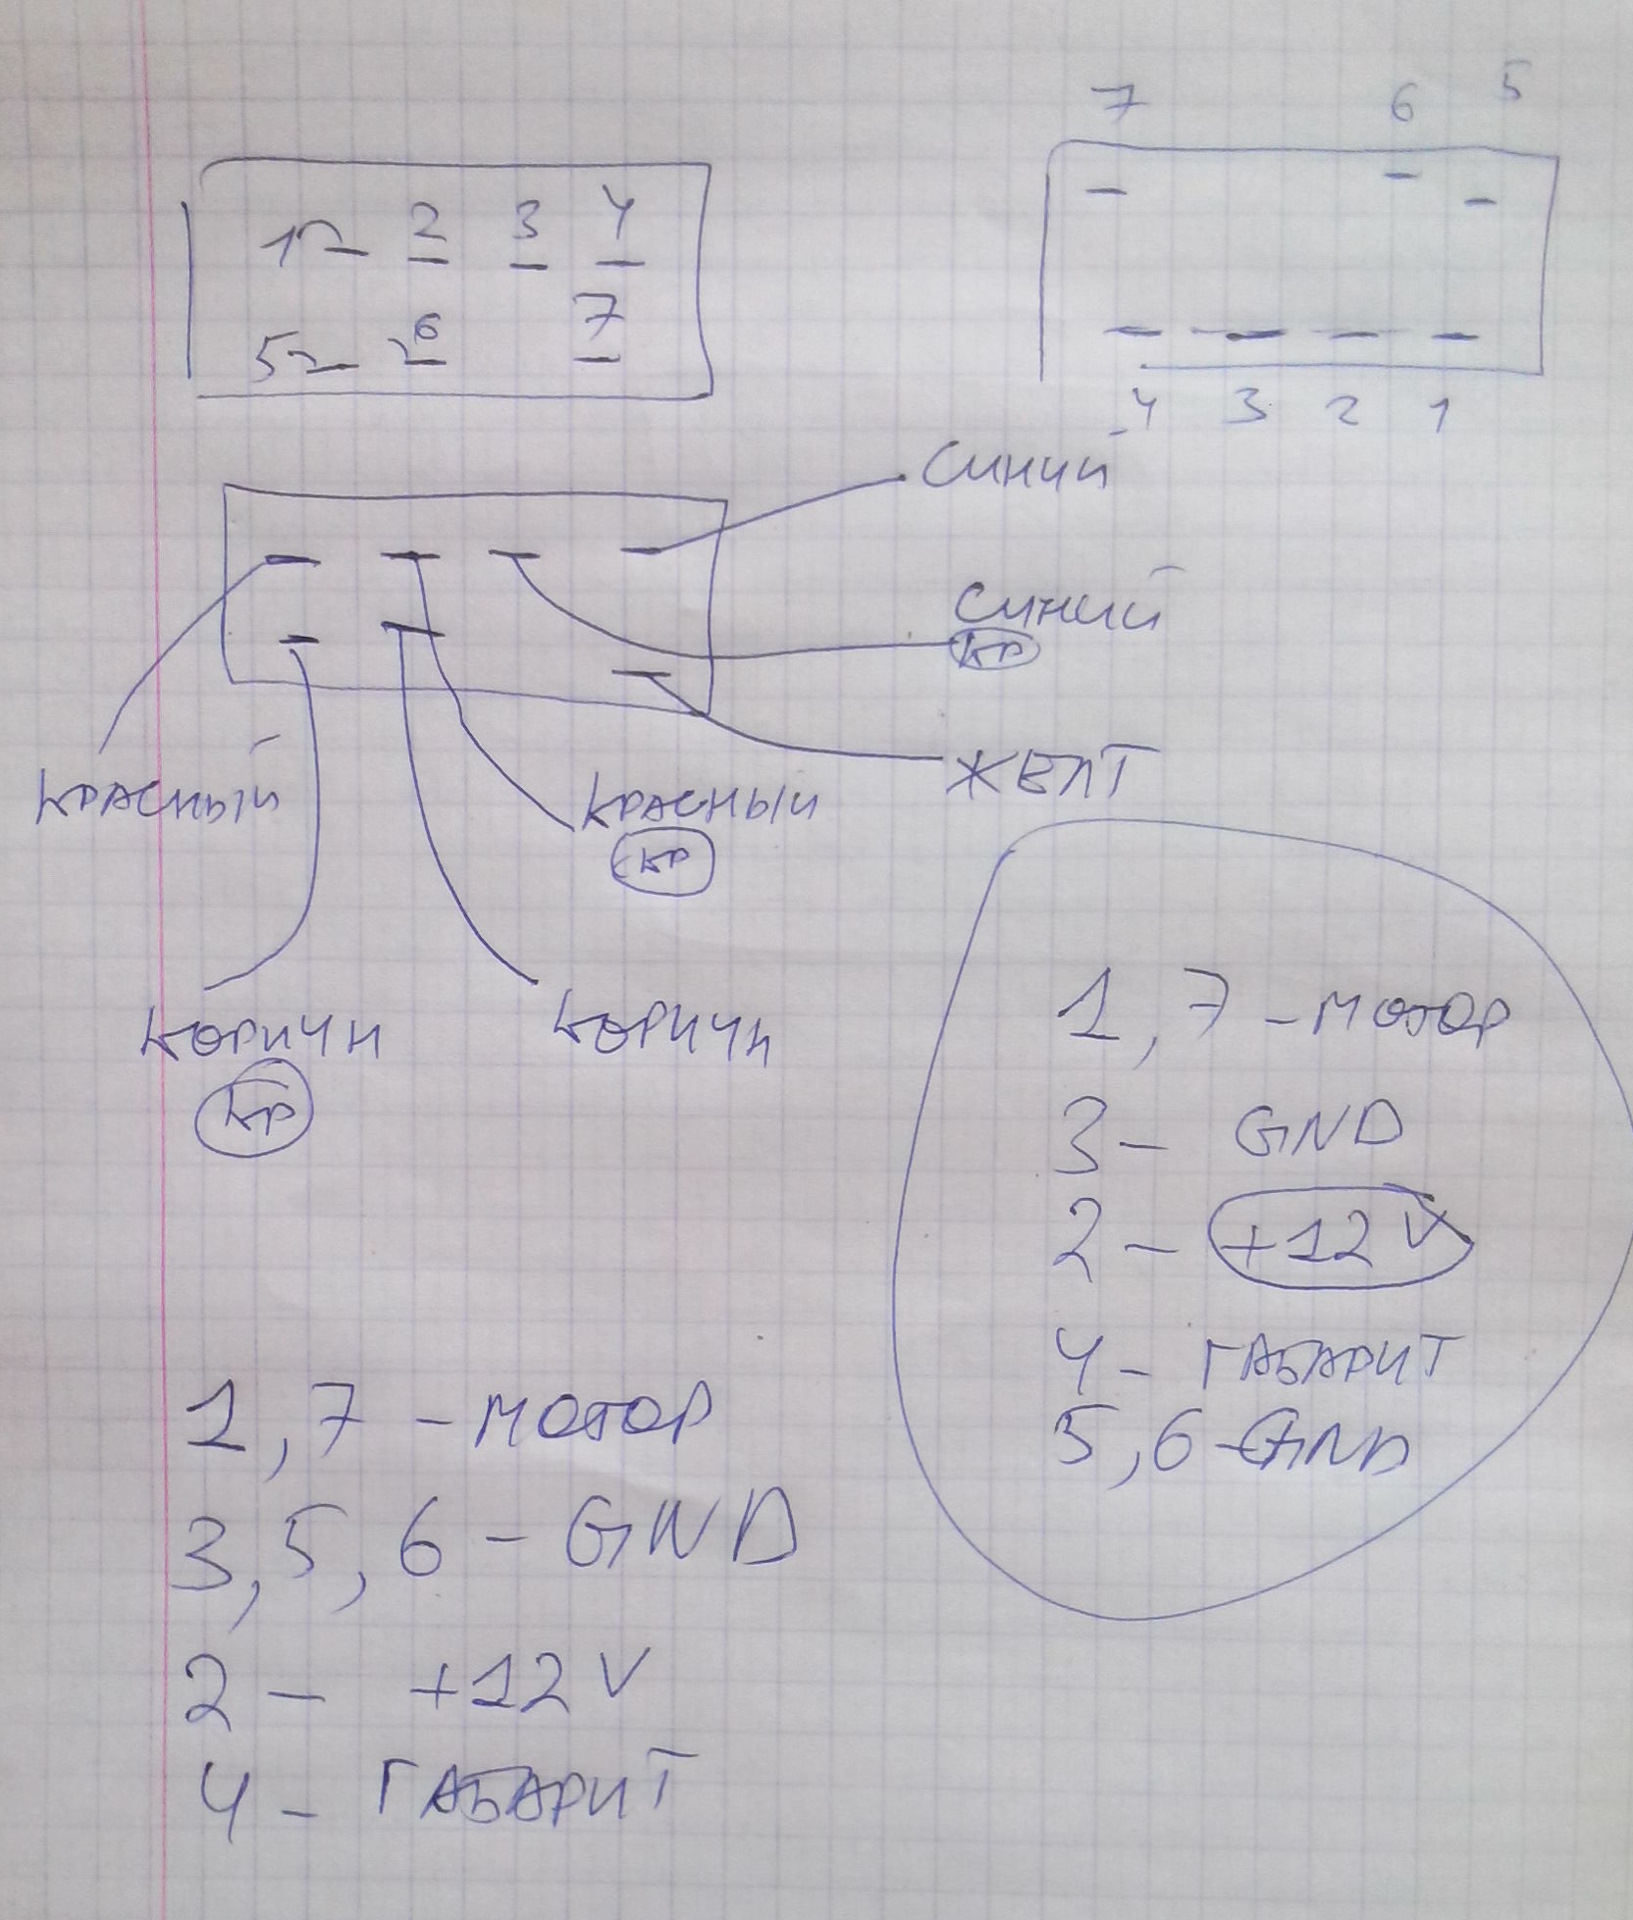 7 6 5
1 2 3 4
5 6 7
4 3 2 1
СИНИЙ
СИНИЙ
КР
ЖЕЛТ
КРАСНЫЙ
КРАСНЫЙ
КР
КОРИЧН
КР
КОРИЧН
1,7 - МОТОР
3 - GND
2 - +12 V
4 - ГАБАРИТ
5,6 - GND
1,7 - МОТОР
3,5,6 - GND
2 - +12 V
4 - ГАБАРИТ